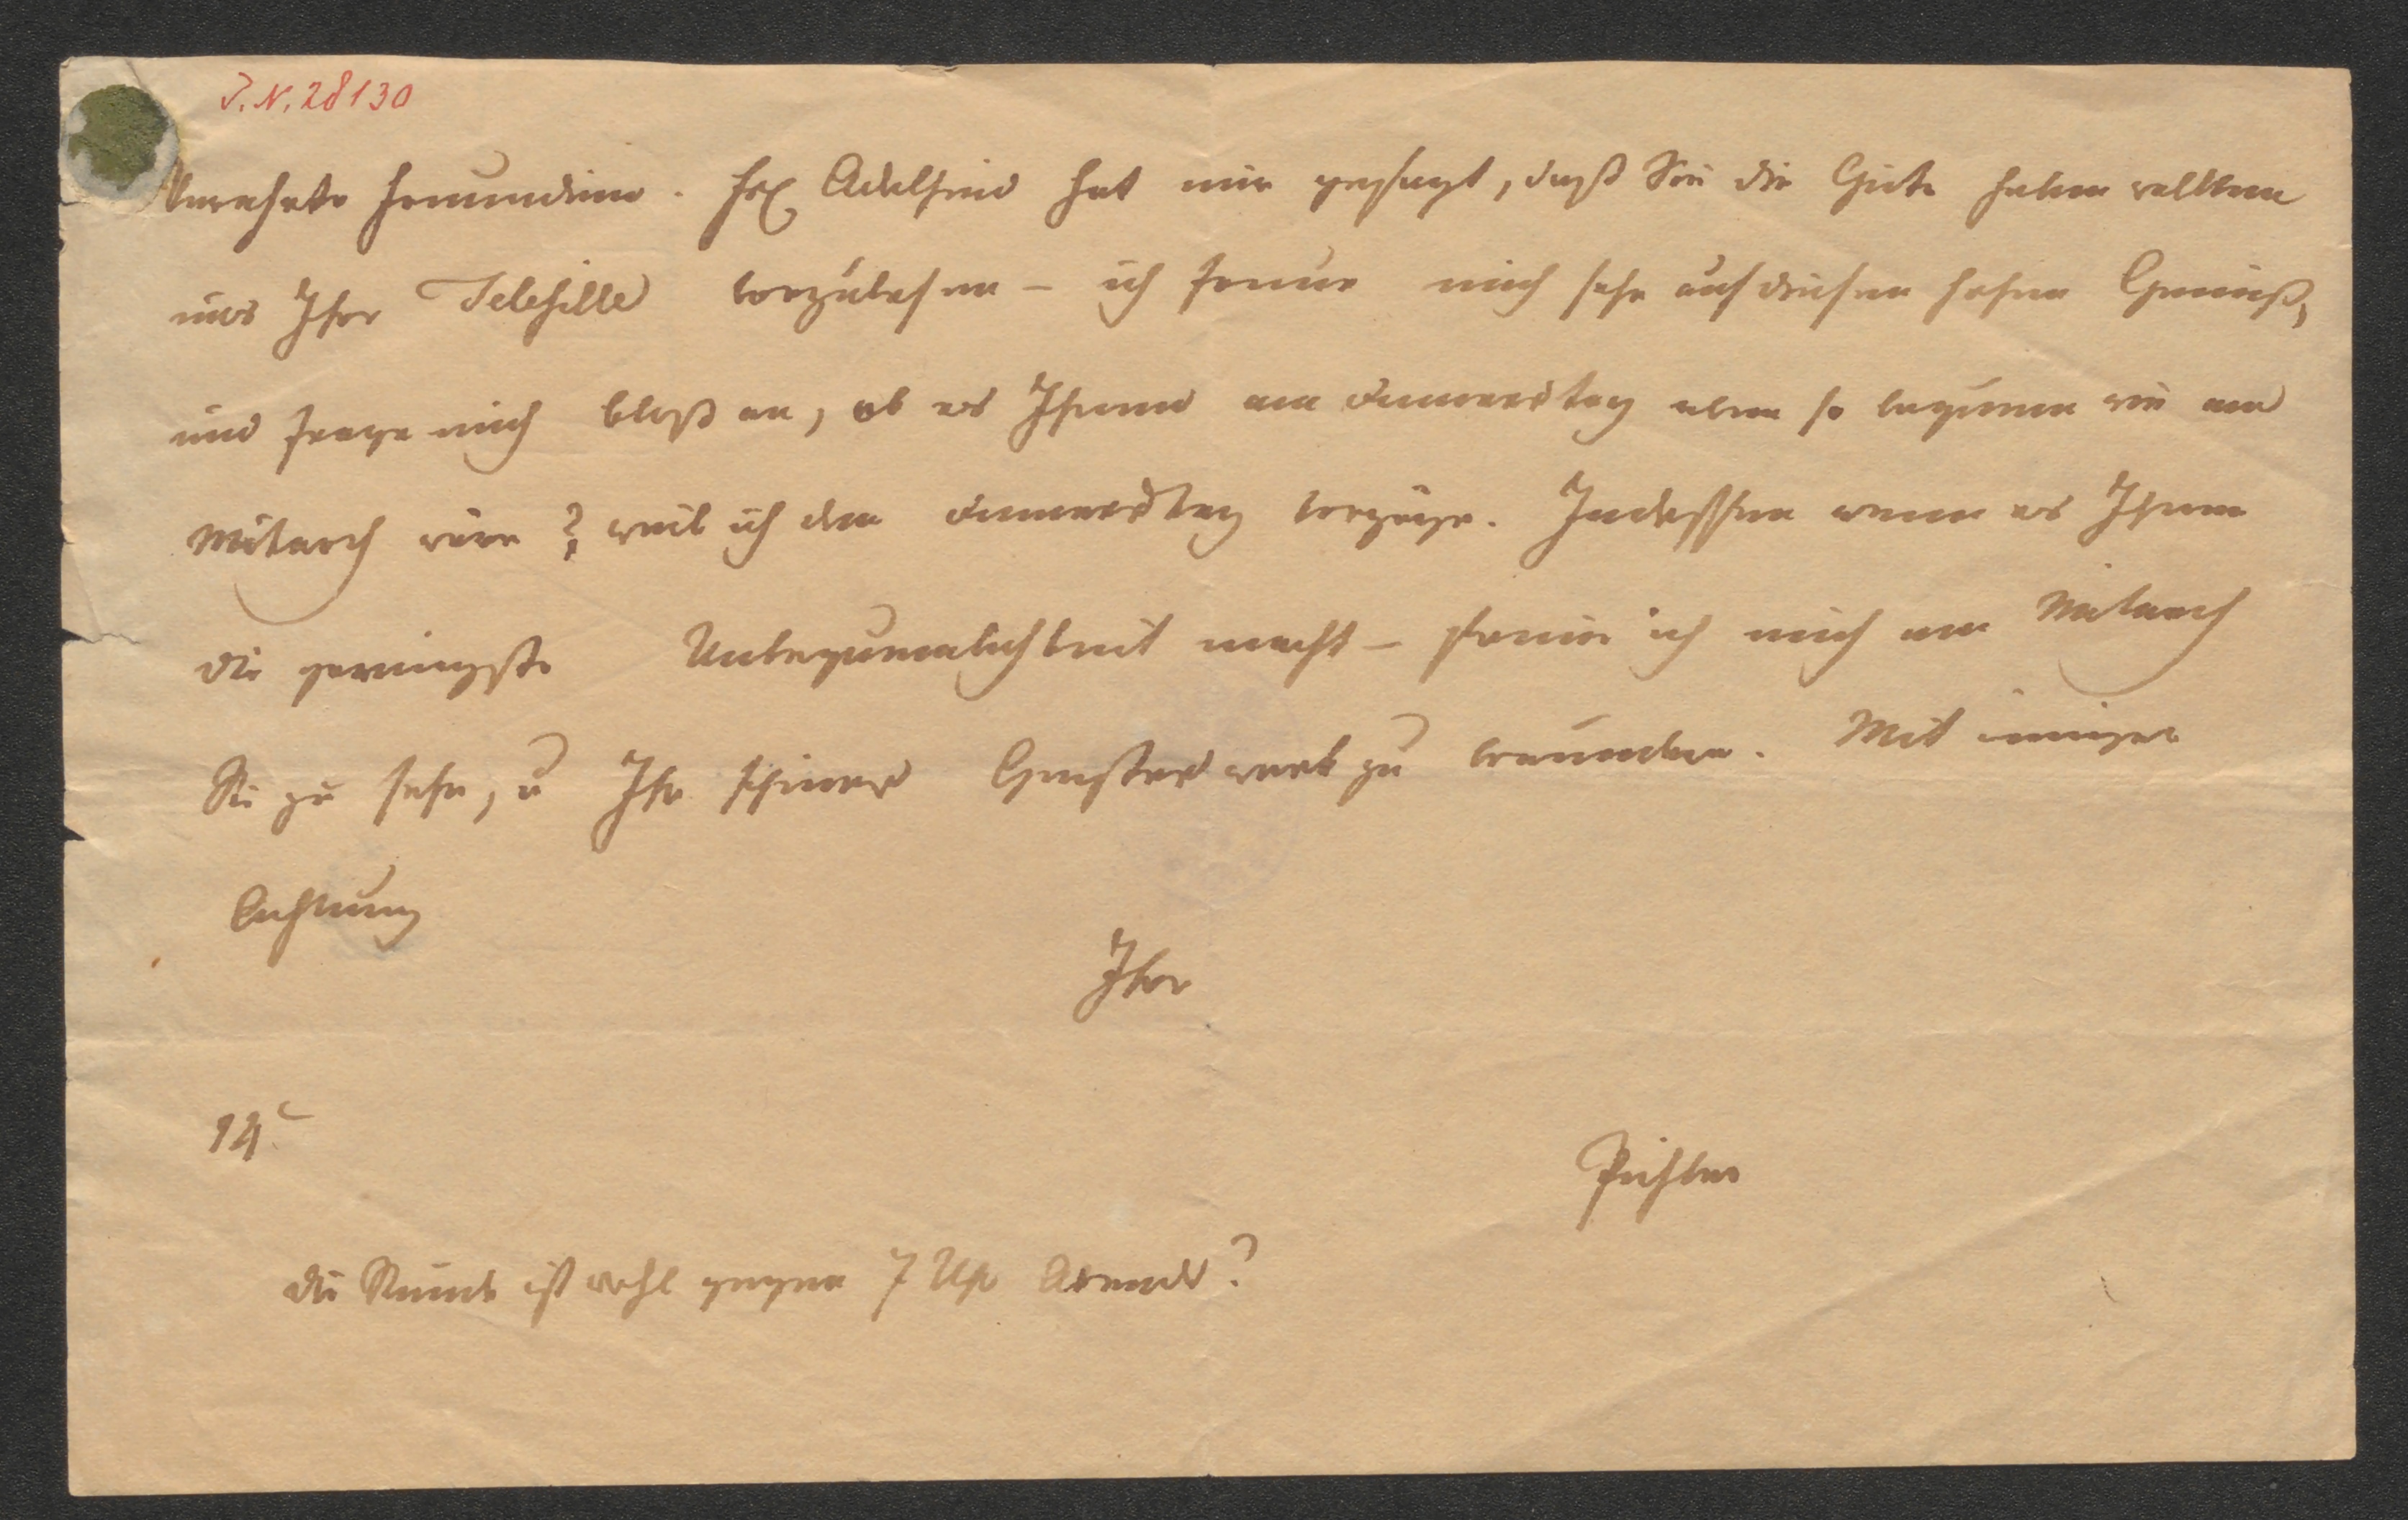 I. N. 28130
Verehrte Freundinn. Frl Adelheid hat mir gesagt, daß Sie die Güte haben wollten
uns Ihre Telesille vorzulesen – ich freue mich sehr auf diesen hohen Genuß,
und frage mich bloß an, ob es Ihnen am Donnerstag eben so bequem wie am
Mitwoch wäre? weil ich den Donnerstag vorzöge. Indessen wenn es Ihnen
die geringste Unbequemlichkeit macht – freue ich mich am Mitwoch
Sie zu sehn, u Ihr schönes Geisteswerk zu bewundern. Mit inniger
Achtung
Ihre
14
Pichler
die Stunde ist wohl gegen 7 Uhr Abends?